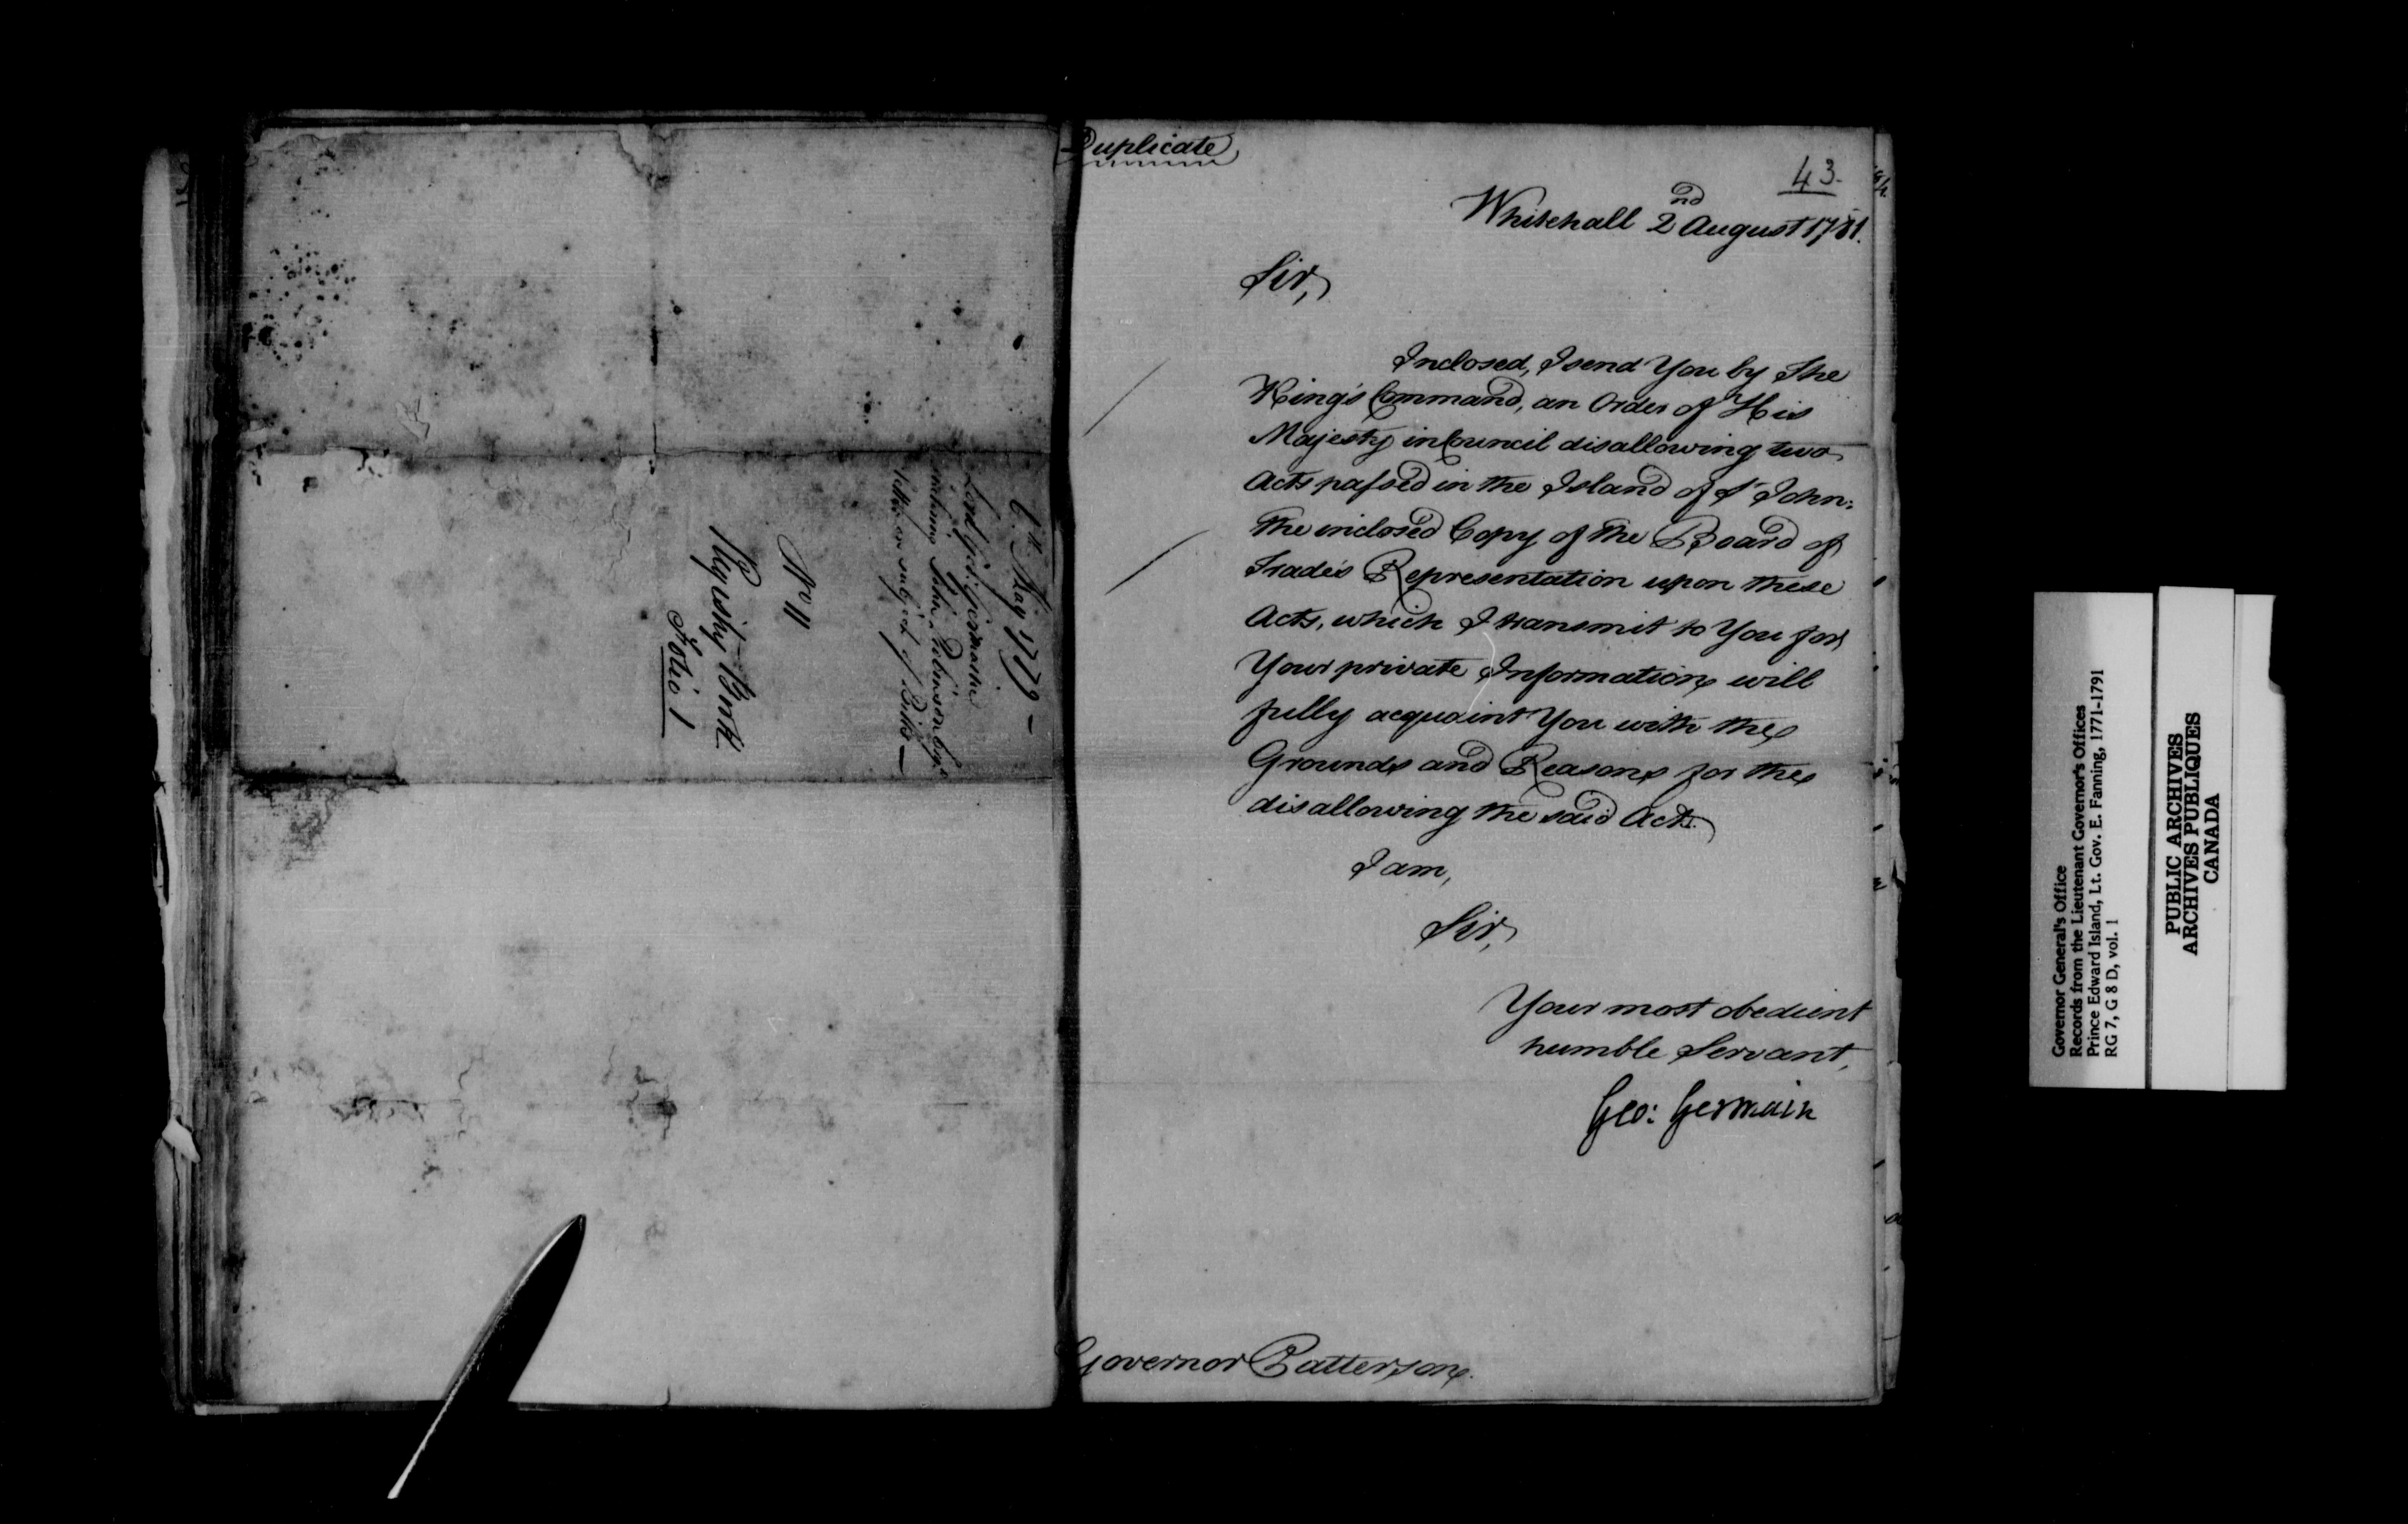 6th May 1779 —
Lord Geo: Germaine
inclosing John Robinson's
letter on subject of Bills —
No 11
Registry Book
Folio 1
Duplicate
43.
Whitehall 2nd August 1781.
Sir,
Inclosed, I send You by The
King's Command, an Order of His
Majesty in Council disallowing two
Acts passed in the Island of St John:
The inclosed Copy of the Board of
Trade's Representation upon these
Acts, which I transmit to You for
Your private Information will
fully acquaint You with the
Grounds and Reasons for the
disallowing the said Acts.
I am,
Sir,
Your most obedient
humble Servant,
Geo: Germain
Governor Patterson.
Governor General's Office
Records from the Lieutenant Governor's Offices
Prince Edward Island, Lt. Gov. E. Fanning, 1771-1791
RG 7, G 8 D, vol. 1
PUBLIC ARCHIVES
ARCHIVES PUBLIQUES
CANADA